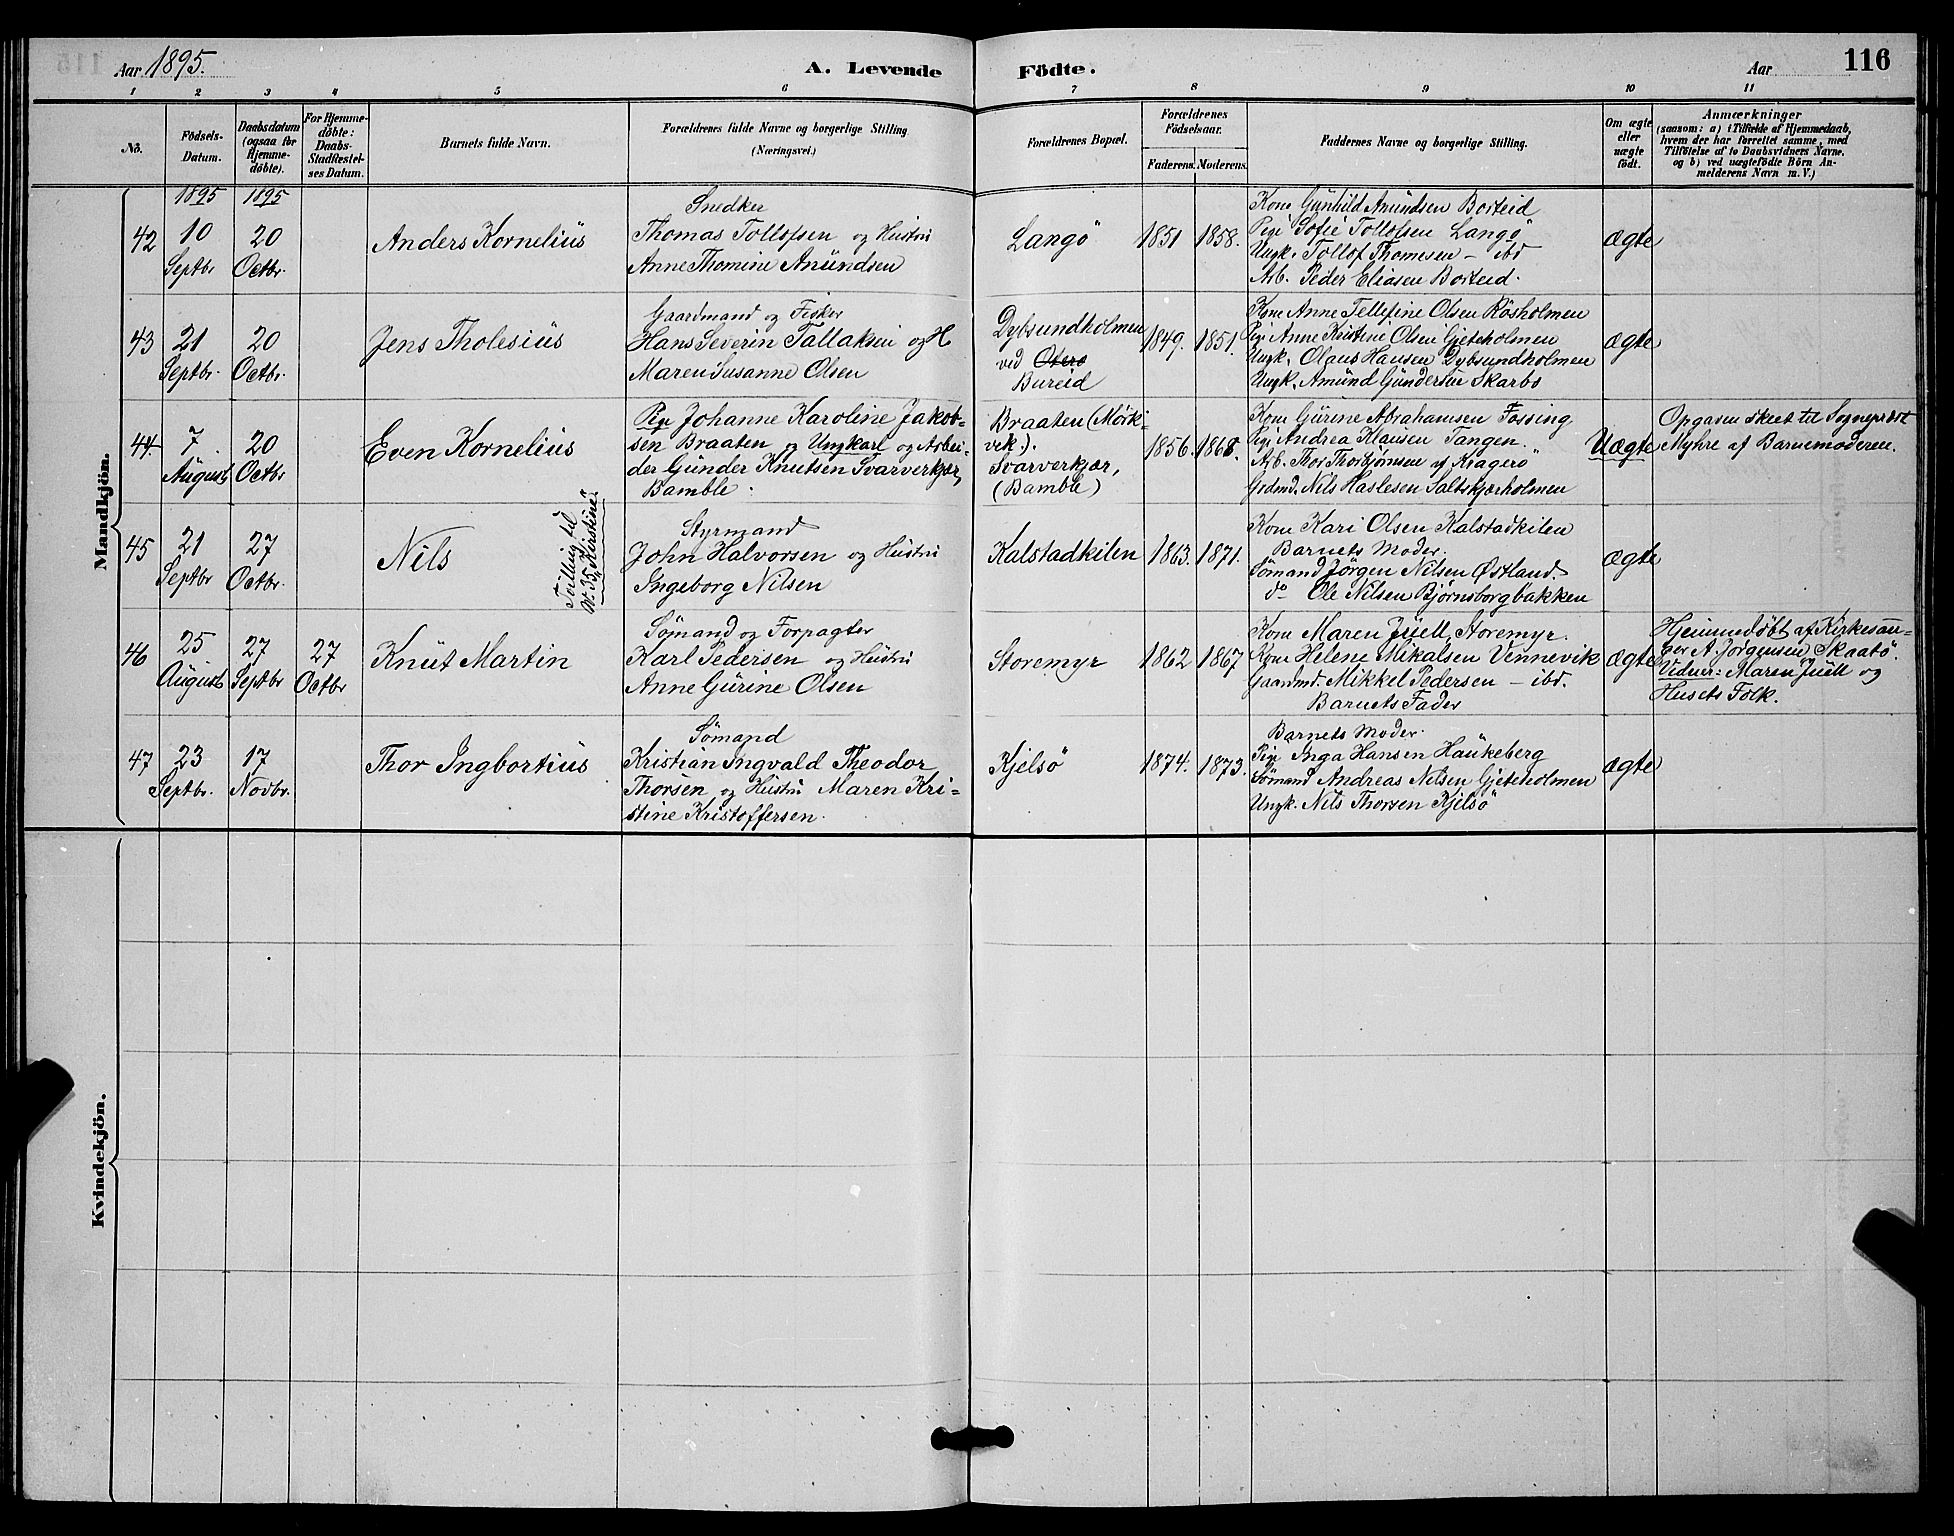 Aar 1895.
A. Levende Födte.
Aar
116
1 2 3 4 5 6 7 8 9 10 11
No.
Födsels-Datum.
Daabsdatum (ogsaa for Hjemme-döbte).
For Hjemme-döbte: Daabs-Stadfæstel-ses Datum.
Barnets fulde Navn.
Forældrenes fulde Navne og borgerlige Stilling
(Næringsvei.)
Forældrenes Bopæl.
Forældrenes Födselsaar.
Faderens. Moderens.
Faddernes Navne og borgerlige Stilling.
Om ægte eller uægte födt.
Anmærkninger
(saasom: a) i Tilfælde af Hjemmedaab,
hvem der har forrettet samme, med
Tilföielse af to Daabsvidners Navne,
og b) ved uægtefödte Börn An-
melderens Navn m. V.)
Mandkjön.
1895 1895
42
10 Septbr
20 Octbr.
Anders Kornelius
Snedker
Thomas Tollofsen og Hustru
Anne Thomine Anundsen
Langö
1851 1858.
Kone Gunhild Amundsen Borteid
Pige Sofie Tollofsen Langö
Ungk. Tollof Thomesen – ibd
Arb. Peder Eliasen Borteid.
ægte
43
21 Septbr.
20 Octbr.
Jens Tholesius
Gaardmand og Fisker
Hans Severin Tallaksen og H
Maren Susanne Olsen
Dybsundholmen
ved Oterö
Bureid
1849. 1851.
Kone Anne Tellefine Olsen Rösholmen
Pige Anne Kristine Olsen Gjeteholmen
Ungk. Olaus Hansen Dybsundholmen
Ungk. Amund Gundersen Skarbo
ægte
44
7 August
20 Octbr
Even Kornelius
Pige Johanne Karoline Jakob-
sen Braaten og Ungkarl og Arbei-
der Gunder Knutsen Svarverkjær,
Bamble.
Braaten (Mörk-
vek.).
Svarverkjær,
(Bamble)
1856. 1868.
Kone Gurine Abrahamsen Fossing
Pige Andrea Klausen Tangen.
Arb. Thor Thorbjörnsen af Kragerö
Grdmd. Nils Haslesen Saltskjærholmen
Uægte
Opgaven skeet til Sogneprest
Myhre af Barnemoderen.
45
21 Septbr
27 Octbr.
Nils
Tvilling til
No 35, "Kirstine"
Styrmand
John Halvorsen og Hustru
Ingeborg Nilsen
Kalstadkilen
1863. 1871.
Kone Kari Olsen Kalstadkilen
Barnets Moder.
Sömand Jörgen Nilsen Østland.
do Ole Nilsen Björnsborgbakken
ægte
46
25 August
27 Septbr
27 Octbr
Knut Martin
Sömand og Forpagter
Karl Pedersen og Hustru
Anne Gurine Olsen
Storemyr
1862 1867
Kone Maren Juell, Storemyr.
Kone Helene Mikalsen Vennevik
Gaardmd. Mikkel Pedersen – ibd.
Barnets Fader
ægte
Hjemmedöbt af Kirkesan-
ger A. Jörgensen Skaatö.
Vidner: Maren Juell og
Husets Folk.
47
23 Septbr.
17 Novbr.
Thor Ingbortius
Sömand
Kristian Ingvald Theodor
Thorsen og Hustru Maren Kri-
stine Kristoffersen.
Kjelsö
1874. 1873.
Barnets Moder.
Pige Inga Hansen Haukeberg
Sömand Andreas Nilsen Gjeteholmen
Ungk. Nils Thorsen Kjelsö
ægte
Kvindekjön.